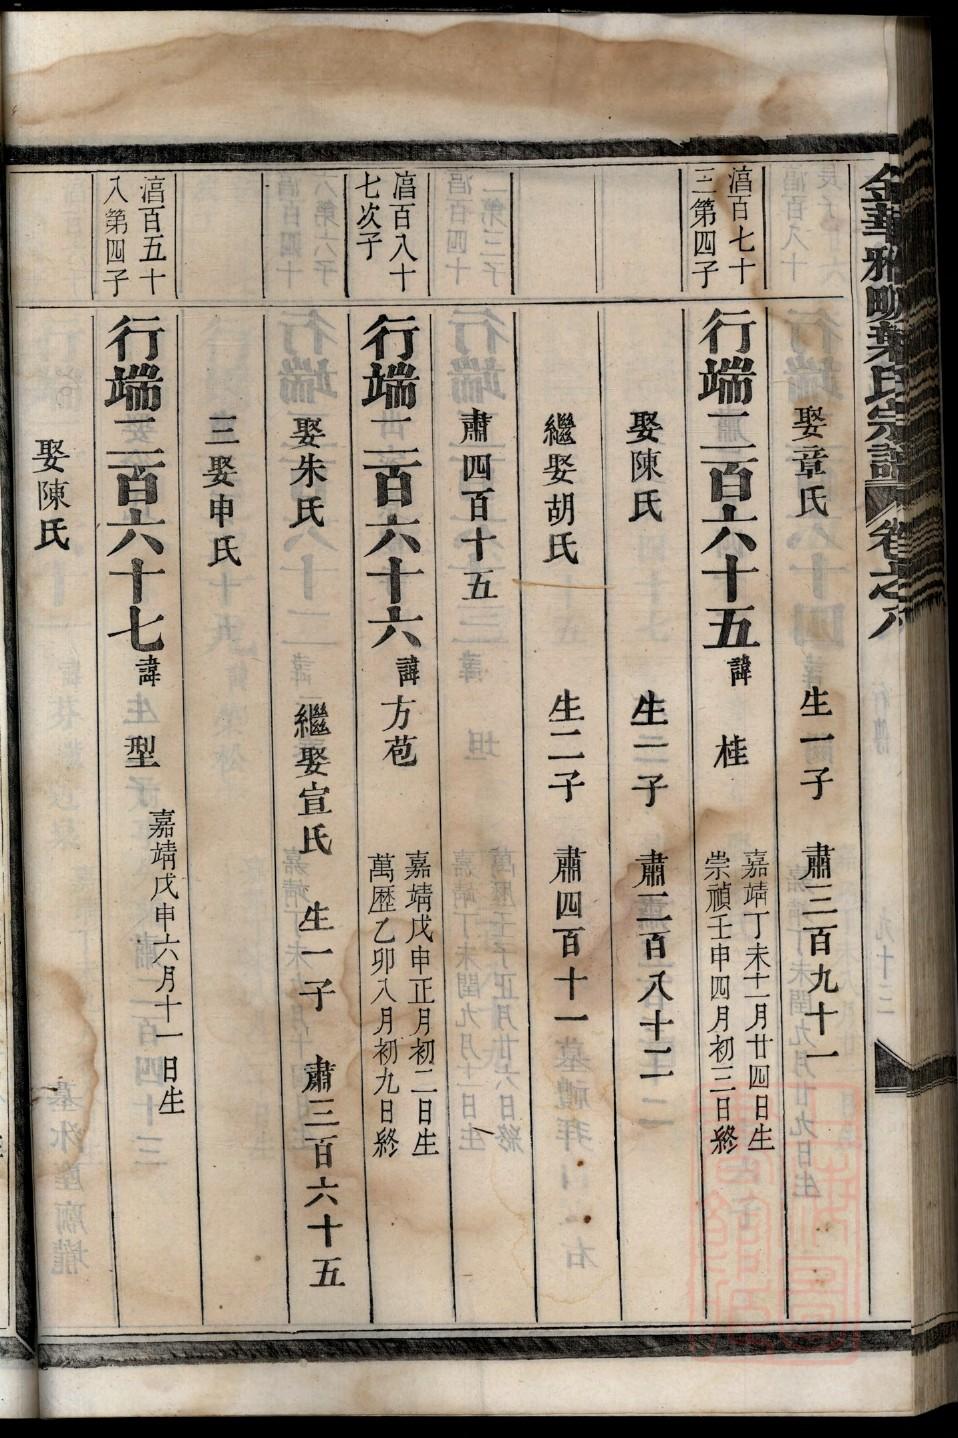 金華雅畈葉氏宗譜 卷之八
娶章氏 生一子 肅三百九十一
湻百七十三第四子
行端二百六十五 諱 桂 嘉靖丁未十一月廿四日生 崇禎壬申四月初三日終
娶陳氏 生二子 肅二百八十二
繼娶胡氏 生二子 肅四百十一
肅四百十五
湻百八十七次子
行端二百六十六 諱 方苞 嘉靖戊申正月初二日生 萬歷乙卯八月初九日終
娶朱氏 繼娶宣氏 生一子 肅三百六十五
三娶申氏
湻百五十八第四子
行端二百六十七 諱 型 嘉靖戊申六月十一日生
娶陳氏